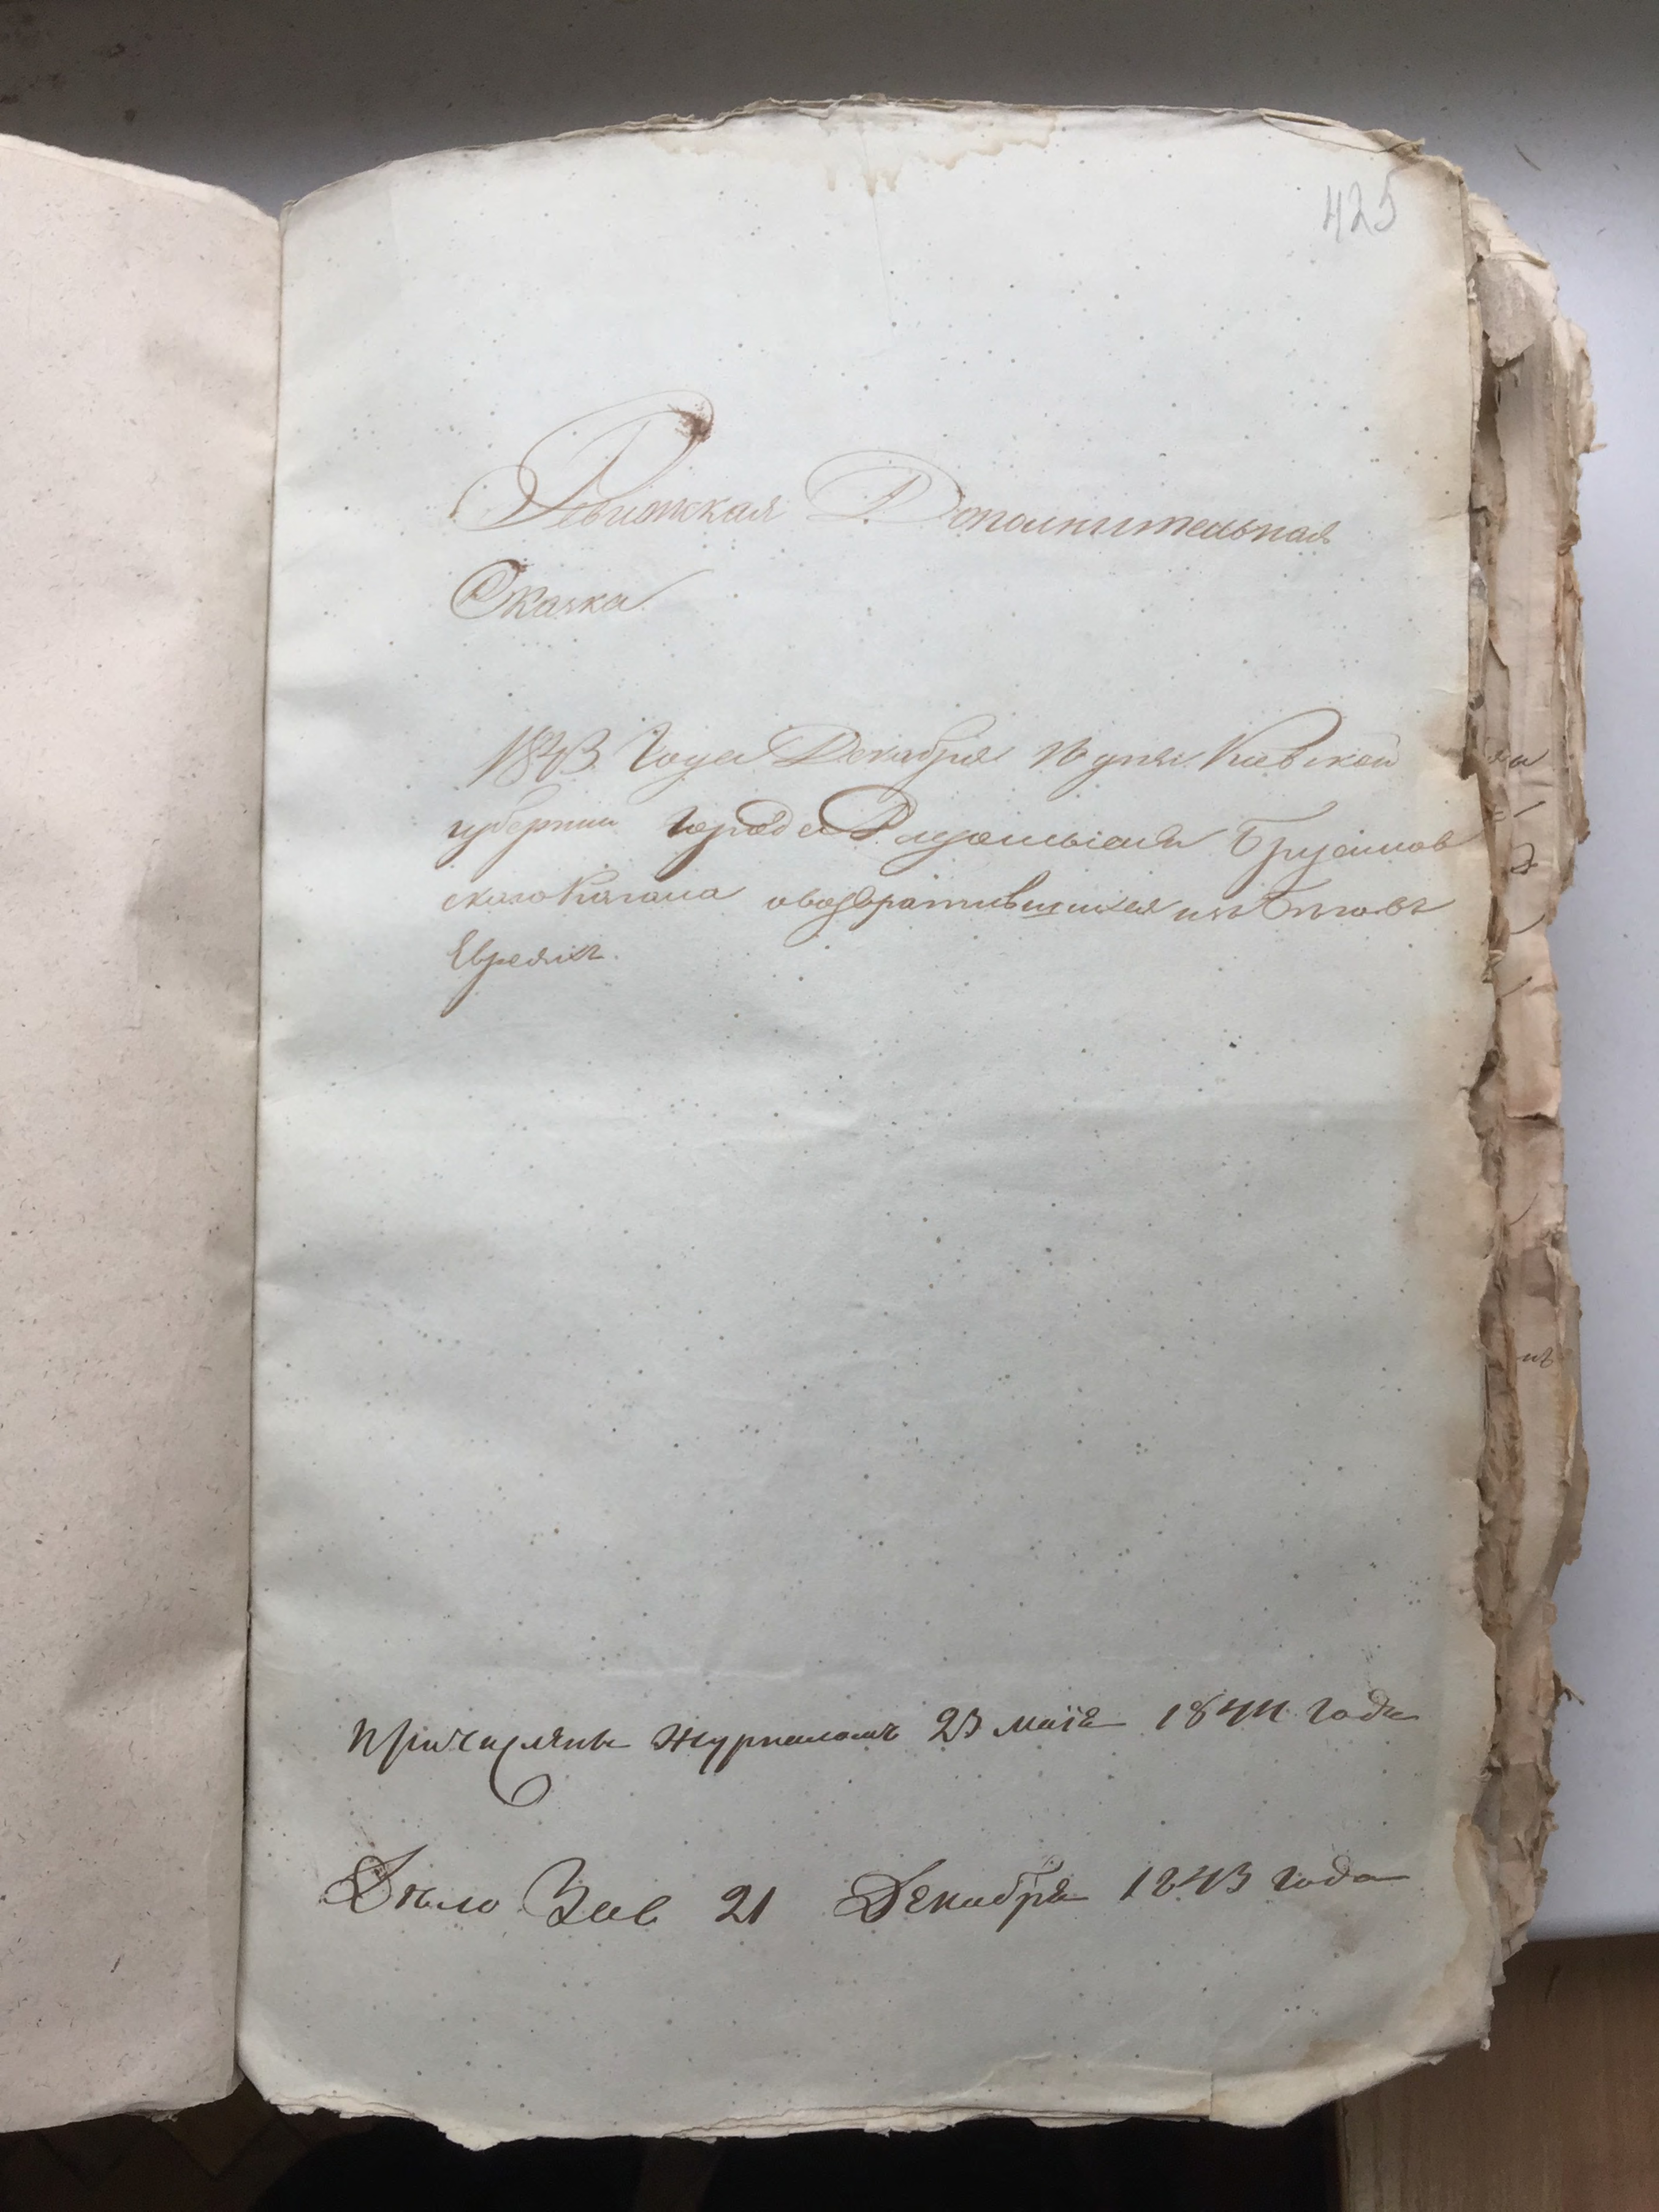 425
Ревижская Дополнительная
Сказка
1843 Года Декабря 16 дня Киевской
губерніи города Радомысля Брусилов
скаго Кагала о возвратившихся изъ беговъ
Евреяхъ.
Причислены журналомъ 23 маія 1844 года
Дѣло Зав 21 Декабря 1843 года